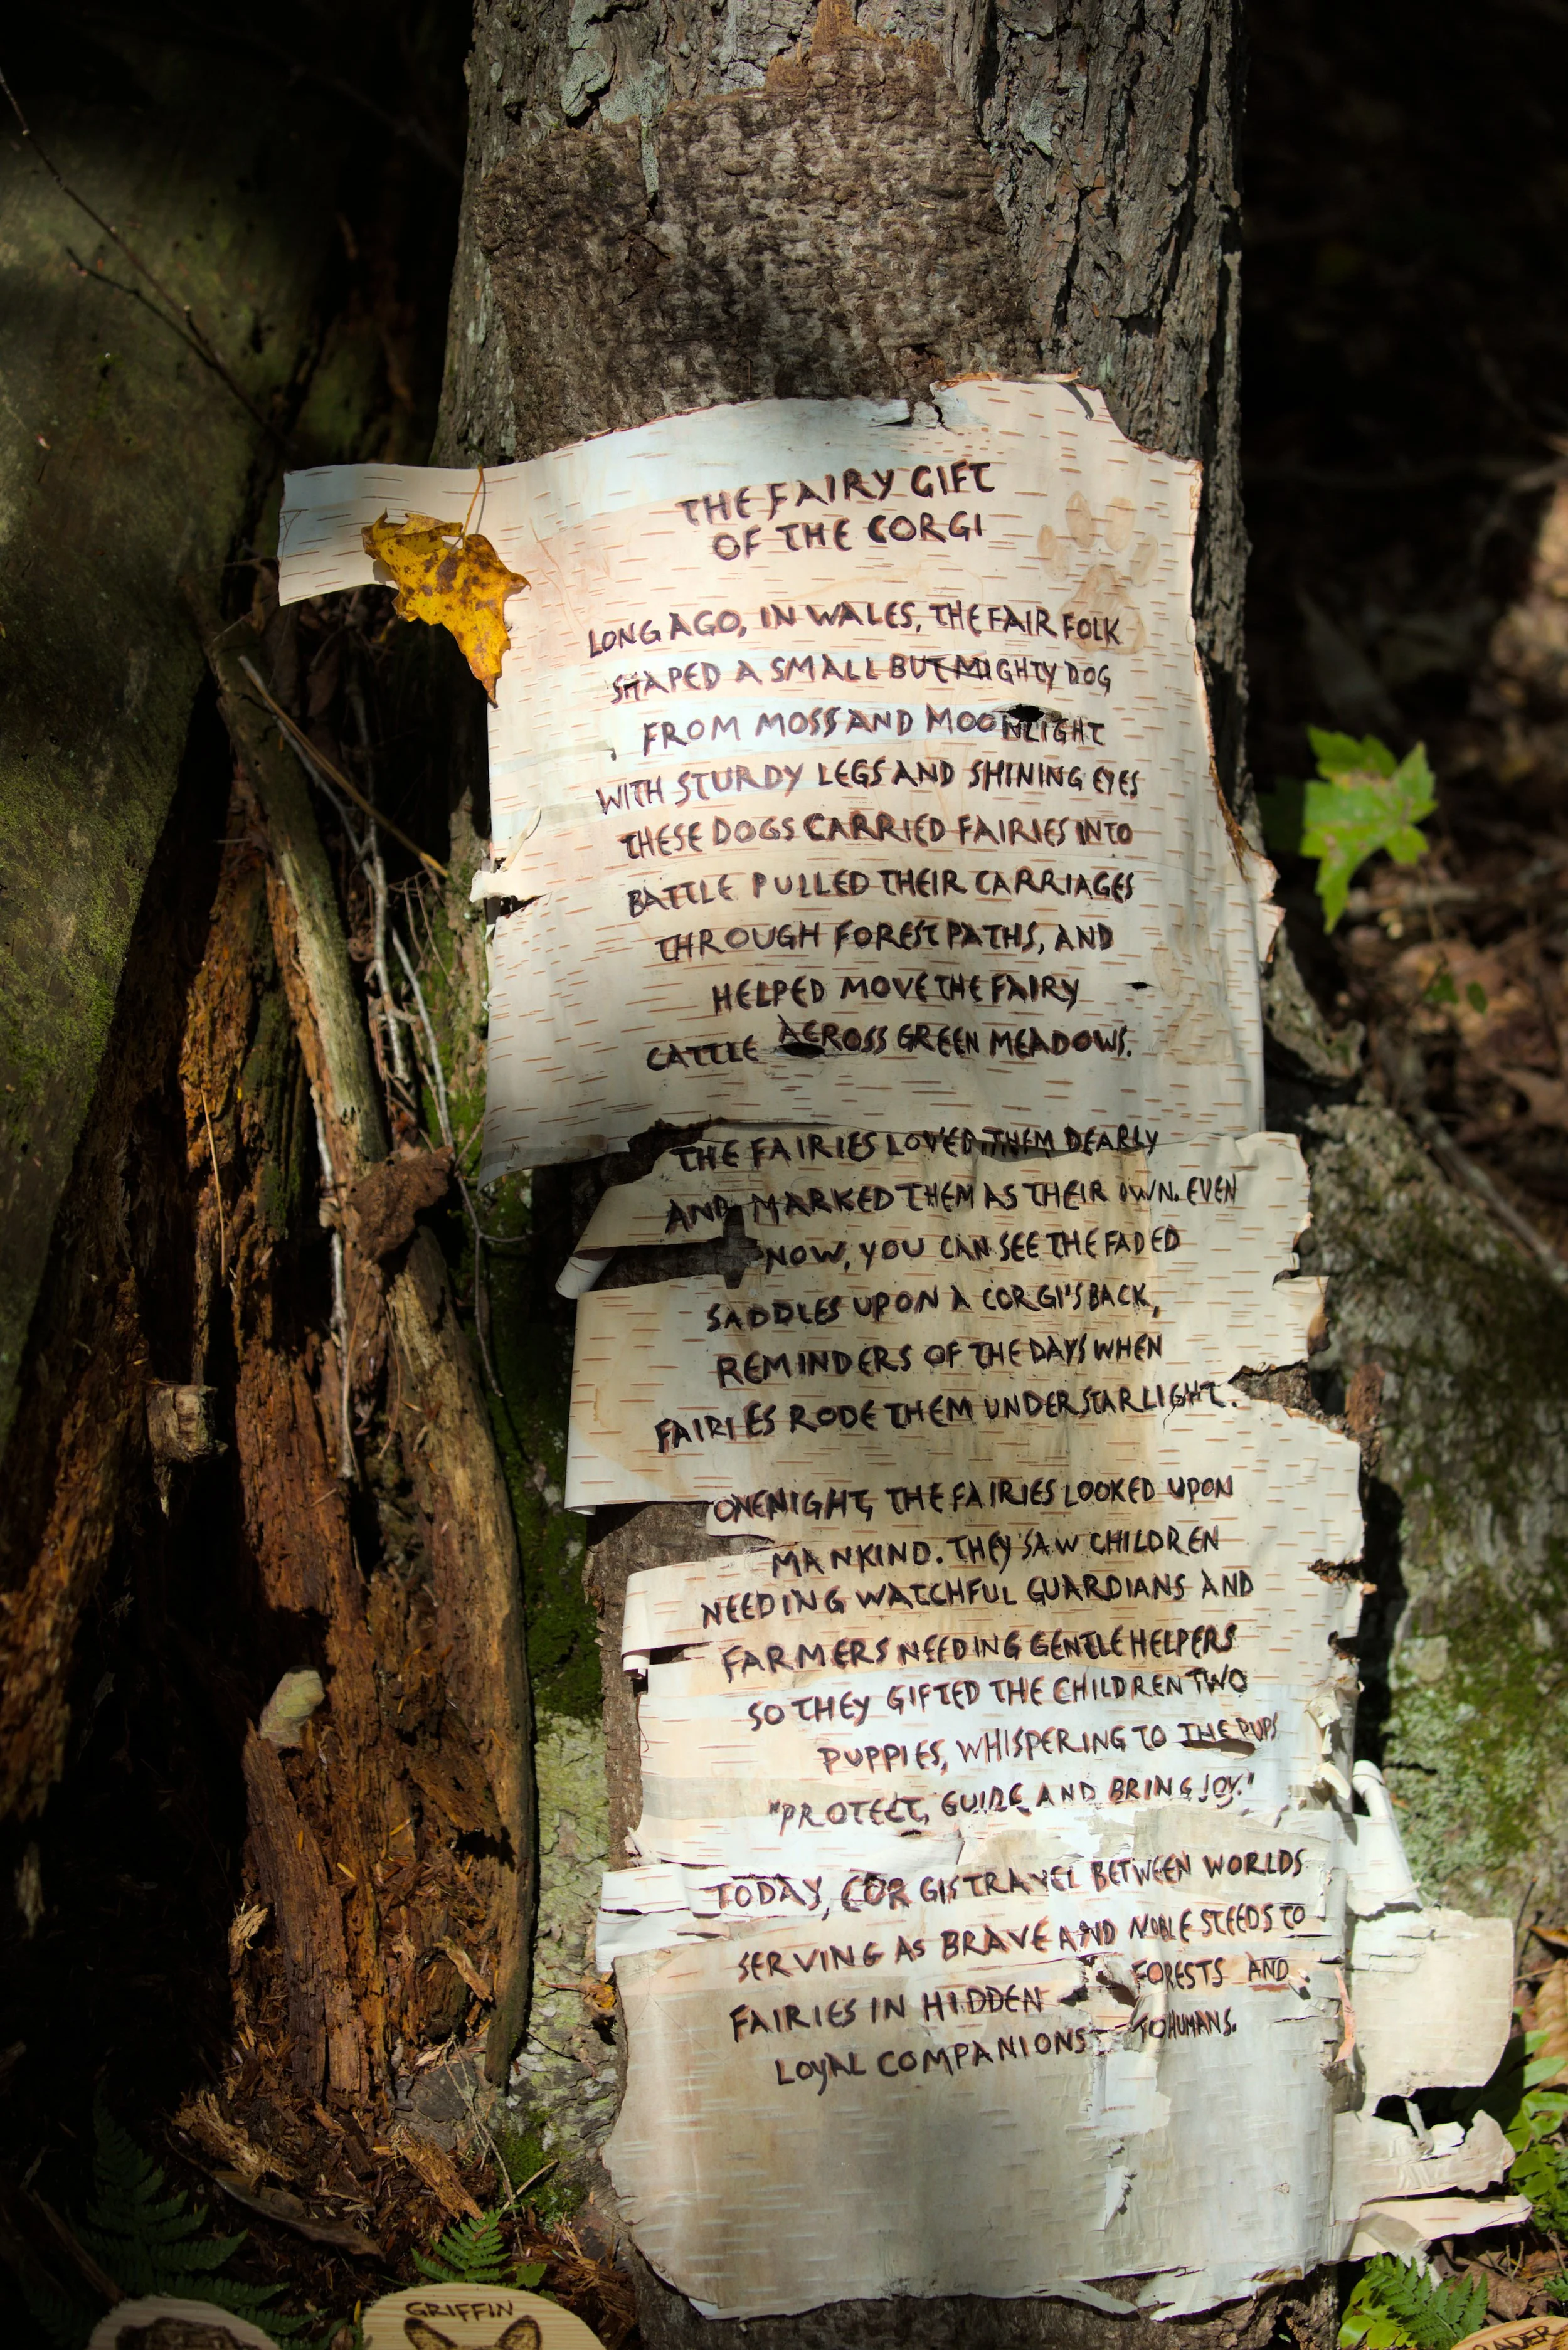 THE FAIRY GIFT
OF THE CORGI
LONG AGO, IN WALES, THE FAIR FOLK
SHAPED A SMALL BUT MIGHTY DOG
FROM MOSS AND MOONLIGHT
WITH STURDY LEGS AND SHINING EYES
THESE DOGS CARRIED FAIRIES INTO
BATTLE PULLED THEIR CARRIAGES
THROUGH FOREST PATHS, AND
HELPED MOVE THE FAIRY
CATTLE ACROSS GREEN MEADOWS.
THE FAIRIES LOVED THEM DEARLY
AND MARKED THEM AS THEIR OWN. EVEN
NOW, YOU CAN SEE THE FADED
SADDLES UPON A CORGI'S BACK,
REMINDERS OF THE DAYS WHEN
FAIRIES RODE THEM UNDER STARLIGHT.
ONE NIGHT, THE FAIRIES LOOKED UPON
MANKIND. THEY SAW CHILDREN
NEEDING WATCHFUL GUARDIANS AND
FARMERS NEEDING GENTLE HELPERS
SO THEY GIFTED THE CHILDREN TWO
PUPPIES, WHISPERING TO THE PUPS
"PROTECT, GUIDE AND BRING JOY."
TODAY, CORGIS TRAVEL BETWEEN WORLDS
SERVING AS BRAVE AND NOBLE STEEDS TO
FAIRIES IN HIDDEN FORESTS AND
LOYAL COMPANIONS TO HUMANS.
GRIFFIN